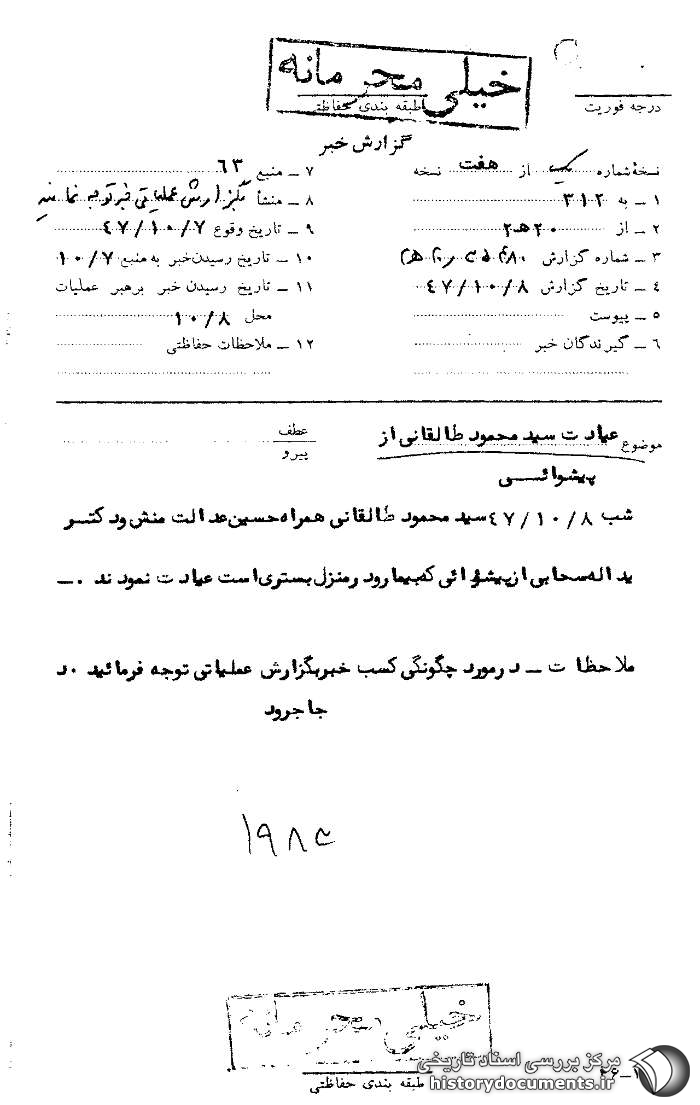 خیلی محرمانه
درجه فوریت
طبقه بندی حفاظتی
گزارش خبر
نسخهٔ شماره یک از هفت نسخه
۱ ـ به ۳۱۲
۲ ـ از ۲۰هـ۲
۳ ـ شماره گزارش
۴ ـ تاریخ گزارش ۴۷/۱۰/۸
۵ ـ پیوست
۶ ـ گیرندگان خبر
۷ ـ منبع ۶۳
۸ ـ منشأ بگزارش عملیاتی توجه نمائید
۹ ـ تاریخ وقوع ۴۷/۱۰/۷
۱۰ ـ تاریخ رسیدن خبر به منبع ۱۰/۷
۱۱ ـ تاریخ رسیدن خبر برهبر عملیات
محل ۱۰/۸
۱۲ ـ ملاحظات حفاظتی
موضوع عیادت سید محمود طالقانی از
پیشوائی
عطف
پیرو
شب ۴۷/۱۰/۸ سید محمود طالقانی همراه حسین عدالت منش و دکتر
یداله سحابی از پیشوائی که بیمار و در منزل بستری است عیادت نمودند ۰ـ
ملاحظات ـ در مورد چگونگی کسب خبر بگزارش عملیاتی توجه فرمائید ۰د
جاجرود
خیلی محرمانه
طبقه بندی حفاظتی
مرکز بررسی اسناد تاریخی
historydocuments.ir